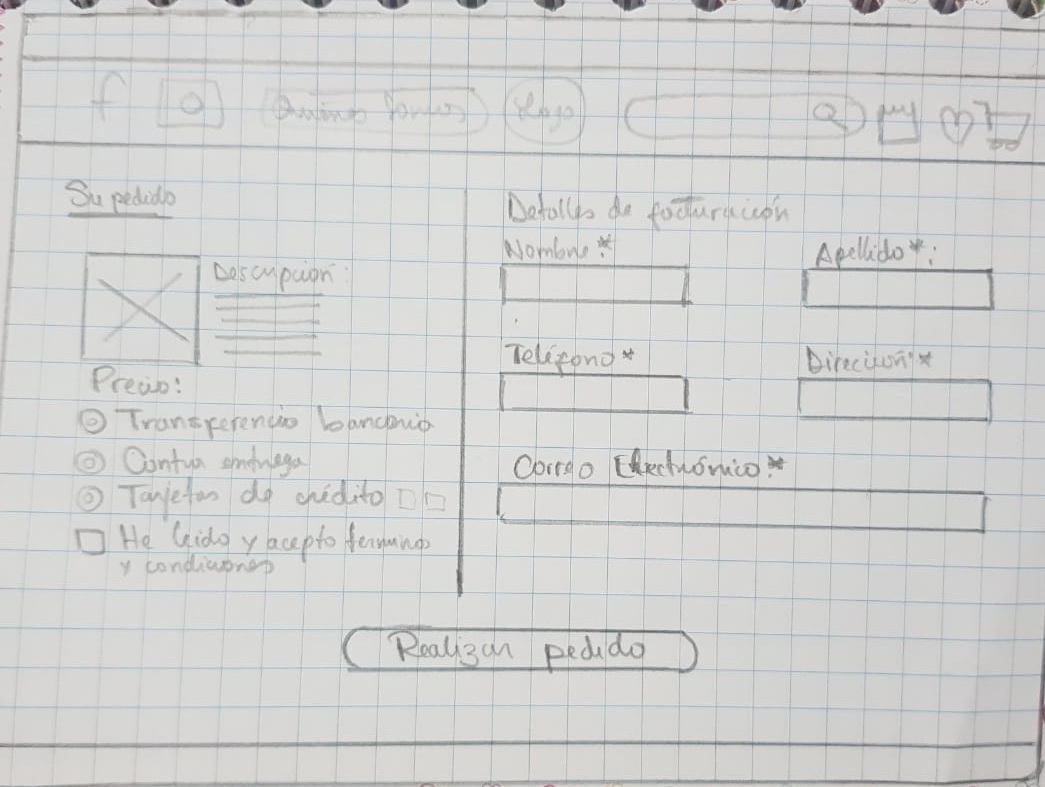 f Quiénes Somos Logo
Su pedido
Descripcion:
Precio:
Transferencia bancaria
Contra entrega
Tarjetas de crédito
He leido y acepto terminos
y condiciones
Detalles de facturación
Nombre*:
Apellido*:
Teléfono*
Dirección:*
Correo Electrónico:*
Realizar pedido